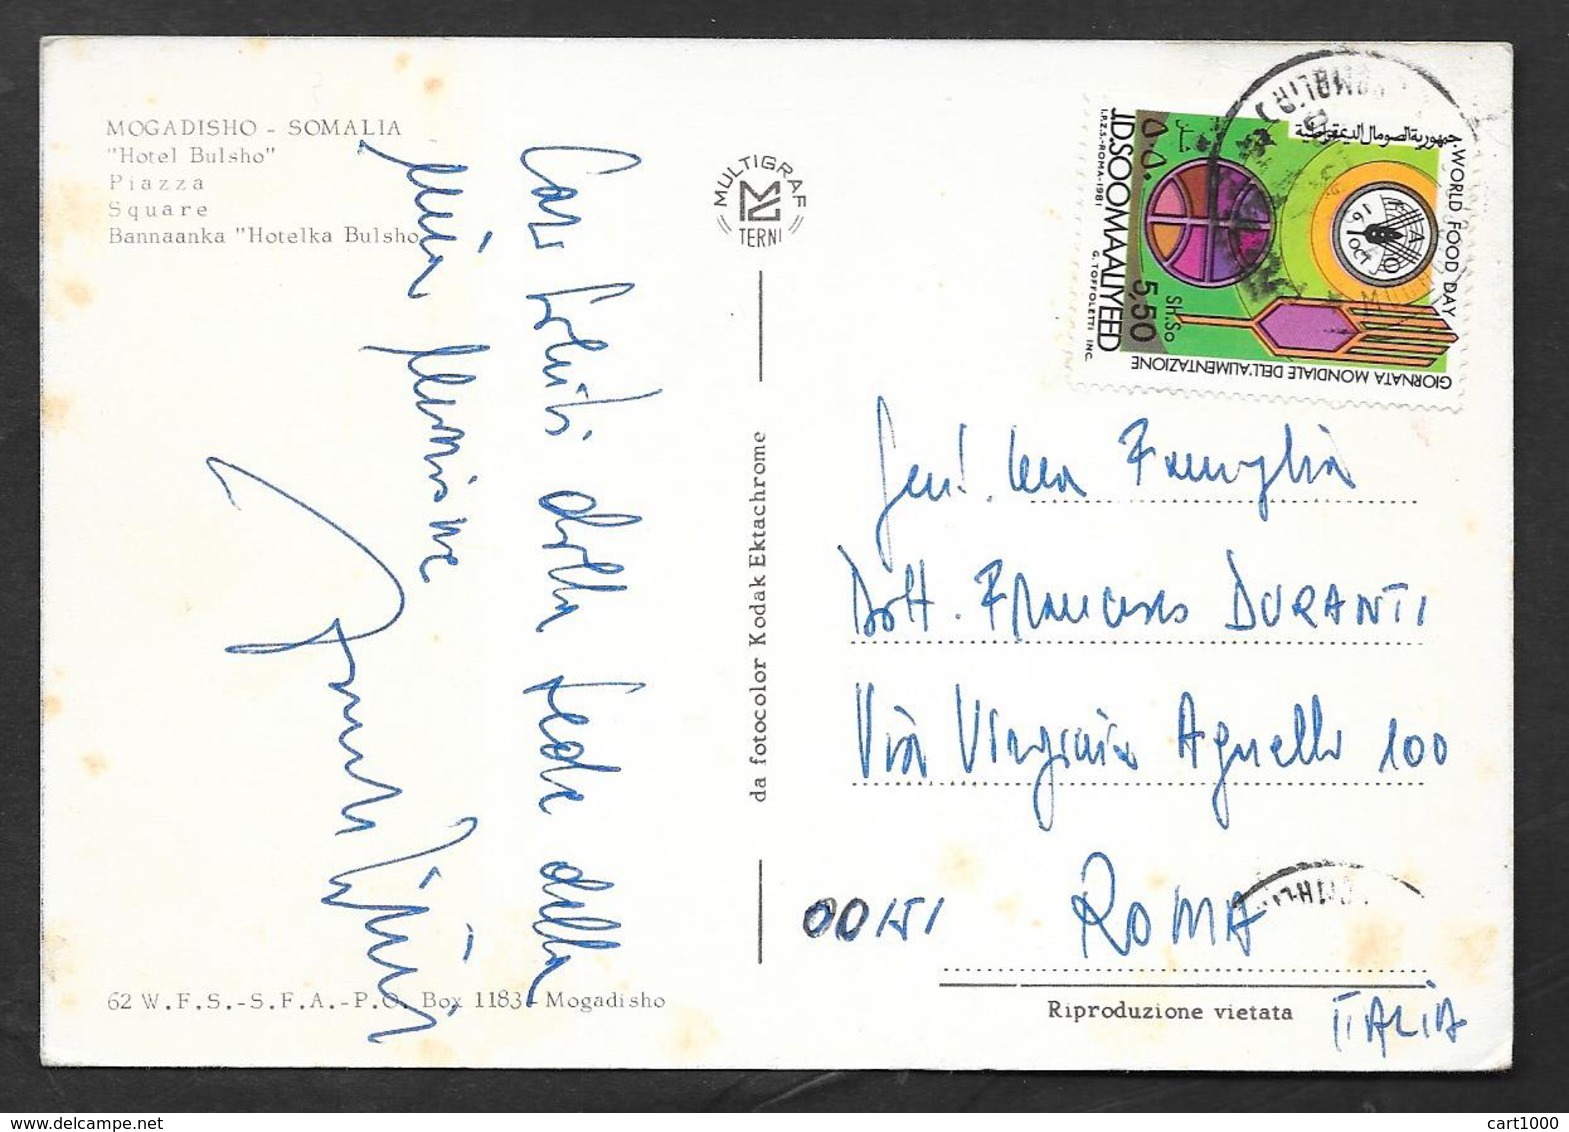 MOGADISHO - SOMALIA
"Hotel Bulsho"
Piazza
Square
Bannaanka "Hotelka Bulsho
Cari saluti dalla sede della
mia missione
MULTIGRAF
TERNI
da fotocolor Kodak Ektachrome
جمهورية الصومال الديمقراطية
WORLD FOOD DAY
GIORNATA MONDIALE DELL'ALIMENTAZIONE
FAO
16 OCT
٥،٥٠
Sh.So
5,50
J.D.SOOMAALIYEED
I.P.Z.S.-ROMA-1981
G. TOFFOLETTI INC.
Gent.ma Famiglia
Dott. Francesco DURANTI
Via Virginia Agnelli 100
00151 ROMA
ITALIA
62 W.F.S.-S.F.A.-P.O. Box 1183-Mogadisho
Riproduzione vietata
cart1000